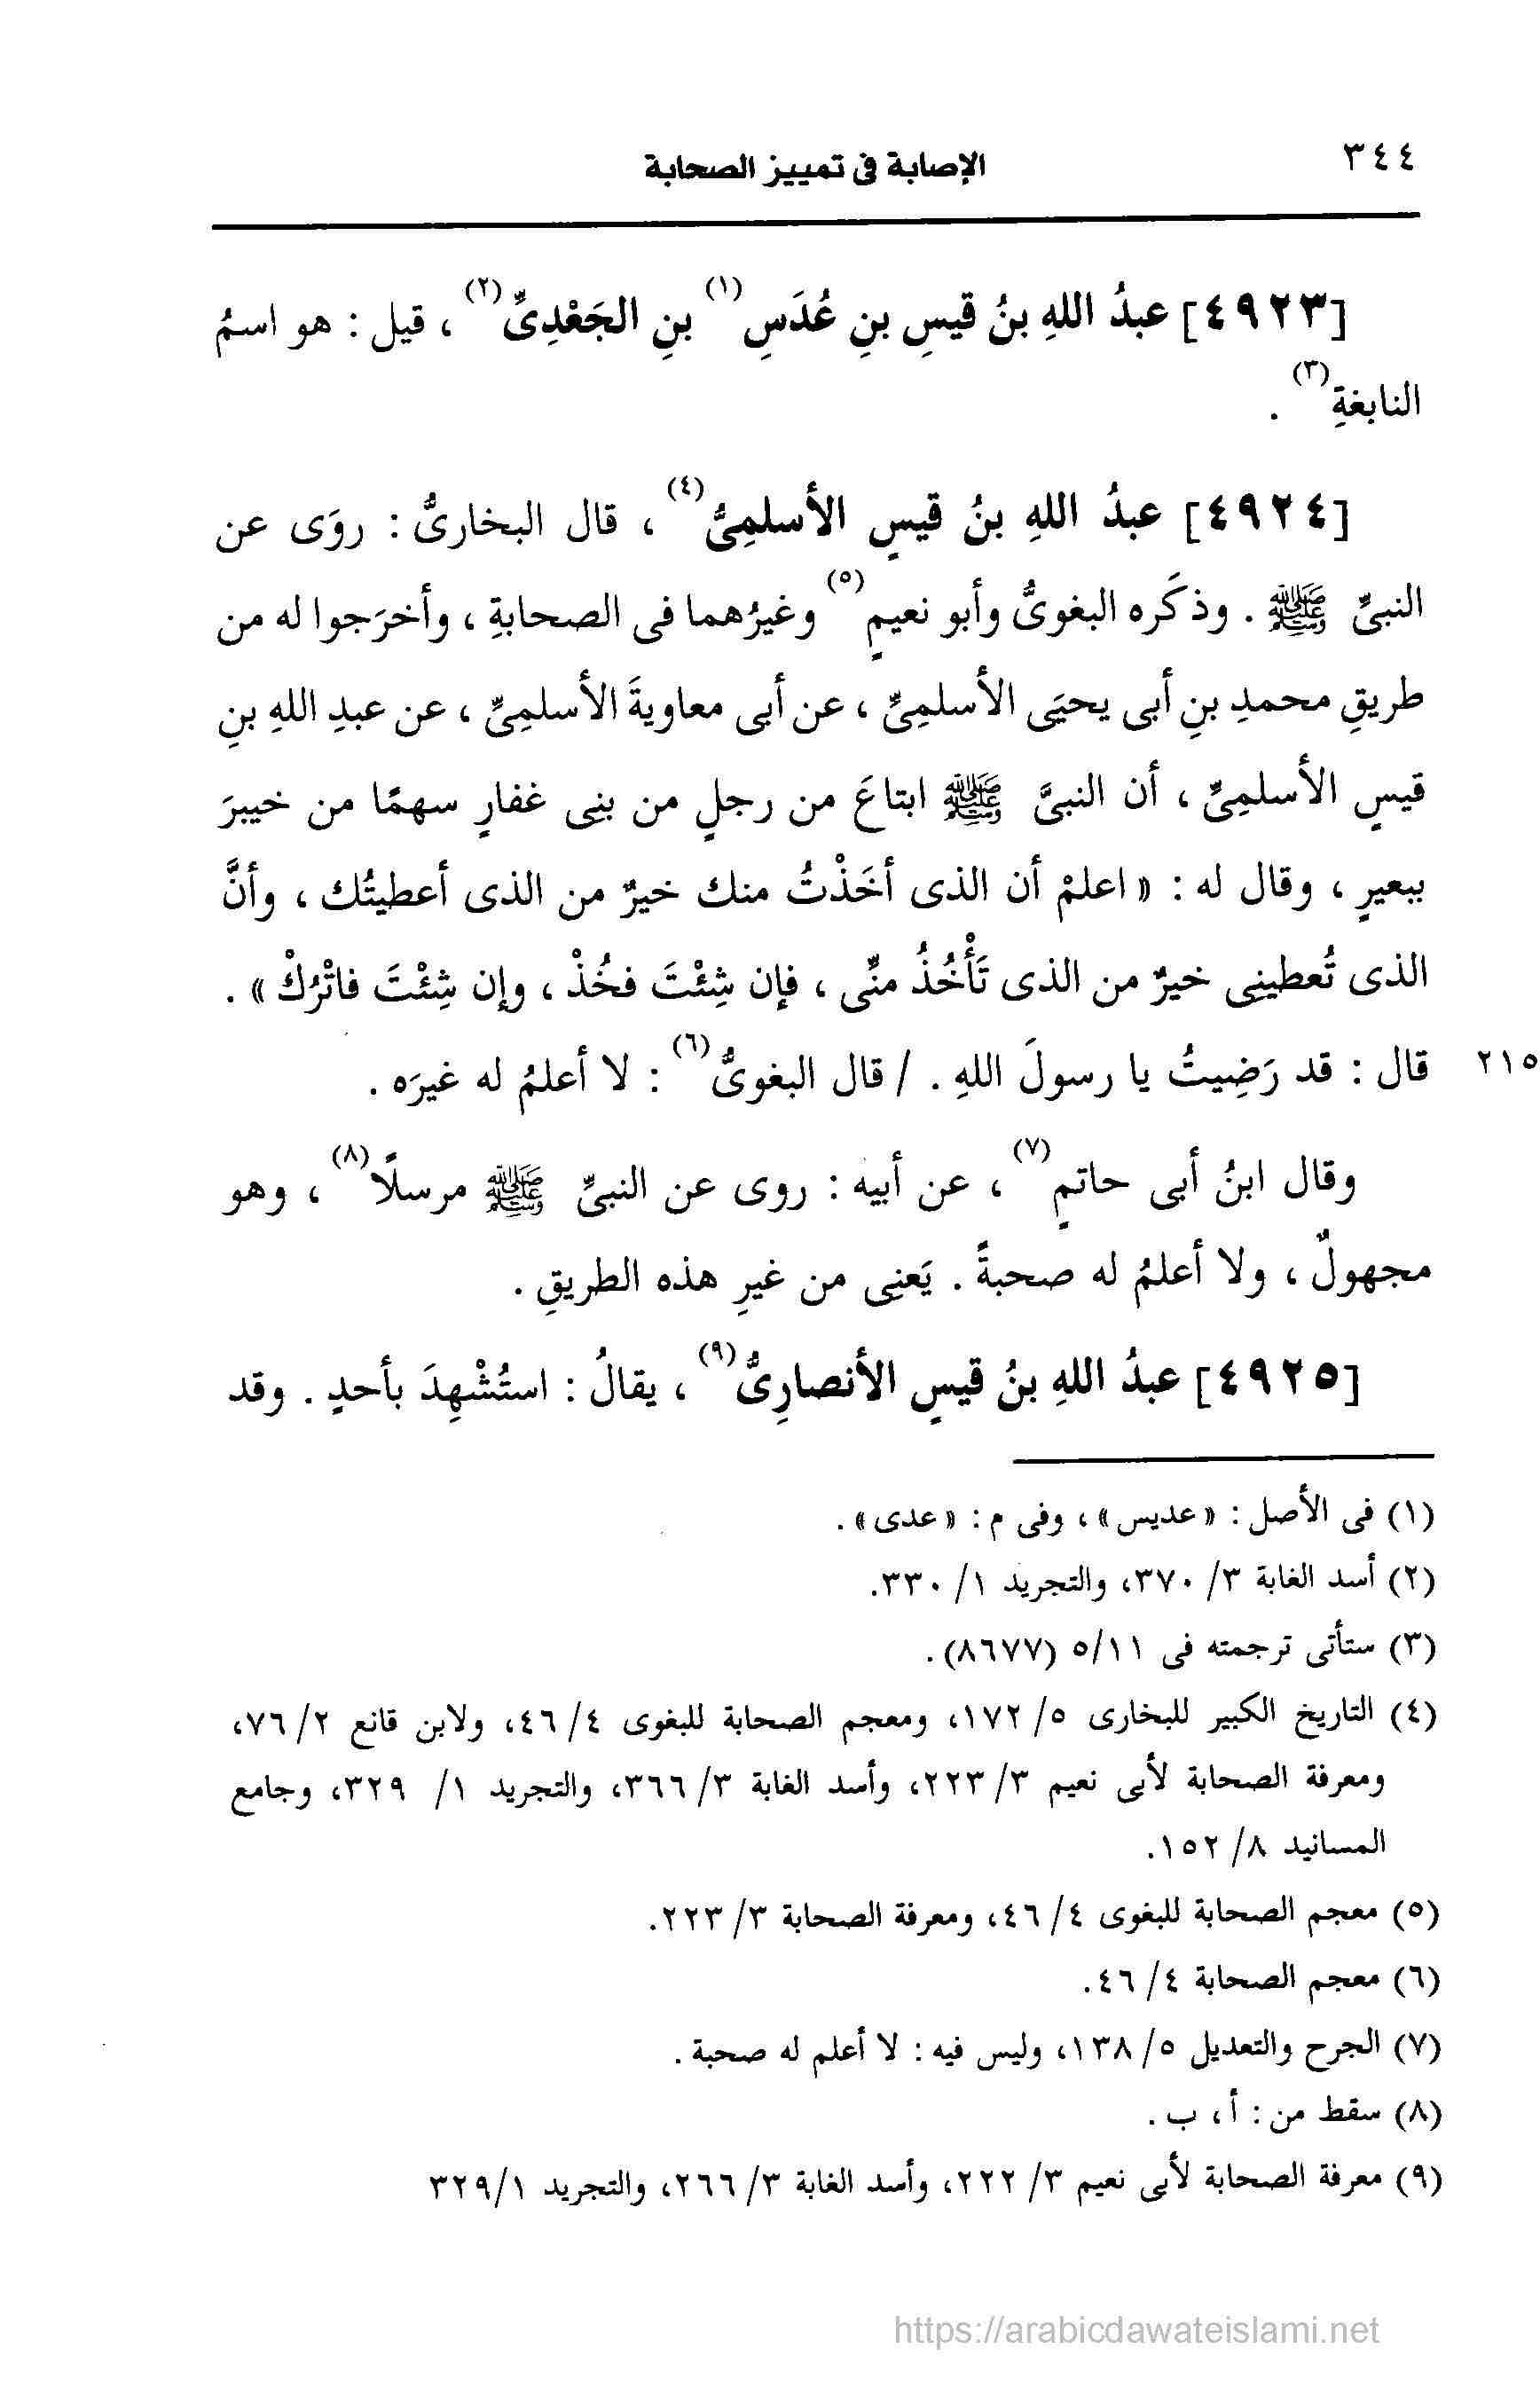 ٣٤٤
الإصابة فى تمييز الصحابة
[٤٩٢٣] عبدُ اللهِ بنُ قيسِ بنِ عُدَسِ(١) بنِ الجَعْدِىِّ(٢) ، قيل : هو اسمُ
النابغةِ(٣) .
[٤٩٢٤] عبدُ اللهِ بنُ قيسٍ الأسلمِىُّ(٤) ، قال البخارىُّ : روَى عن
النبىِّ ﷺ . وذكَره البغوىُّ وأبو نعيمٍ(٥) وغيرُهما فى الصحابةِ ، وأخرَجوا له من
طريقِ محمدِ بنِ أبى يحيَى الأسلمِىِّ ، عن أبى معاويةَ الأسلمِىِّ ، عن عبدِ اللهِ بنِ
قيسٍ الأسلمِىِّ ، أن النبىَّ ﷺ ابتاعَ من رجلٍ من بنِى غفارٍ سهمًا من خيبرَ
ببعيرٍ ، وقال له : « اعلمْ أن الذى أخَذْتُ منك خيرٌ من الذى أعطيتُك ، وأنَّ
الذى تُعطينِى خيرٌ من الذى تَأْخُذُ منِّى ، فإن شِئْتَ فخُذْ ، وإن شِئْتَ فاتْرُكْ » .
٢١٥ قال : قد رَضِيتُ يا رسولَ اللهِ . / قال البغوىُّ(٦) : لا أعلمُ له غيرَه .
وقال ابنُ أبى حاتمٍ(٧) ، عن أبيه : روى عن النبىِّ ﷺ مرسلًا(٨) ، وهو
مجهولٌ ، ولا أعلمُ له صحبةً . يَعنِى من غيرِ هذه الطريقِ .
[٤٩٢٥] عبدُ اللهِ بنُ قيسٍ الأنصارِىُّ(٩) ، يقالُ : استُشْهِدَ بأحدٍ . وقد
(١) فى الأصل : « عديس » ، وفى م : « عدى » .
(٢) أسد الغابة ٣/ ٣٧٠، والتجريد ١/ ٣٣٠.
(٣) ستأتى ترجمته فى ٥/١١ (٨٦٧٧) .
(٤) التاريخ الكبير للبخارى ٥/ ١٧٢، ومعجم الصحابة للبغوى ٤/ ٤٦، ولابن قانع ٢/ ٧٦،
ومعرفة الصحابة لأبى نعيم ٣/ ٢٢٣، وأسد الغابة ٣/ ٣٦٦، والتجريد ١/ ٣٢٩، وجامع
المسانيد ٨/ ١٥٢.
(٥) معجم الصحابة للبغوى ٤/ ٤٦، ومعرفة الصحابة ٣/ ٢٢٣.
(٦) معجم الصحابة ٤/ ٤٦.
(٧) الجرح والتعديل ٥/ ١٣٨، وليس فيه : لا أعلم له صحبة .
(٨) سقط من : أ ، ب .
(٩) معرفة الصحابة لأبى نعيم ٣/ ٢٢٢، وأسد الغابة ٣/ ٢٦٦، والتجريد ٣٢٩/١
https://arabicdawateislami.net